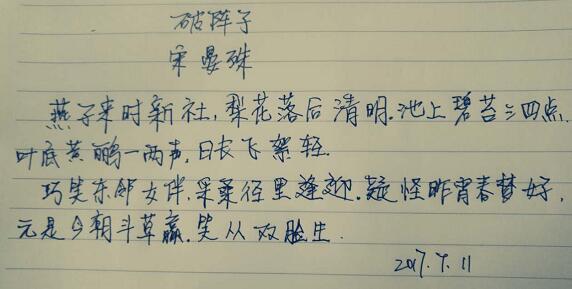 破阵子
宋晏殊
燕子来时新社,梨花落后清明.池上碧苔三四点.
叶底黄鹂一两声,日长飞絮轻.
巧笑东邻女伴.采桑径里逢迎.疑怪昨宵春梦好,
元是今朝斗草赢.笑从双脸生.
2017.7.11